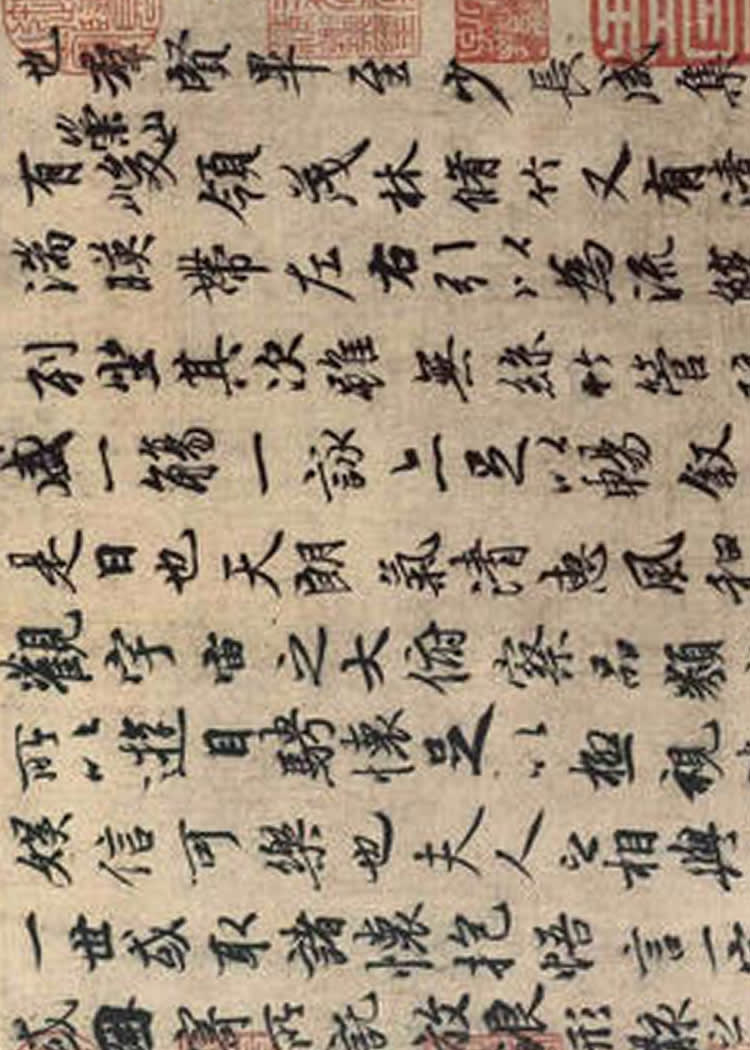 也羣賢畢至少長咸集
有崇山峻領茂林脩竹又有清
湍暎帶左右引以為流觴
列坐其次雖無絲竹管
盛一觴一詠亦足以暢敘
是日也天朗氣清惠風和
觀宇宙之大俯察品類
所以遊目騁懷足以極視
娛信可樂也夫人之相與
一世或取諸懷抱悟言一
或因寄所託放浪形骸之